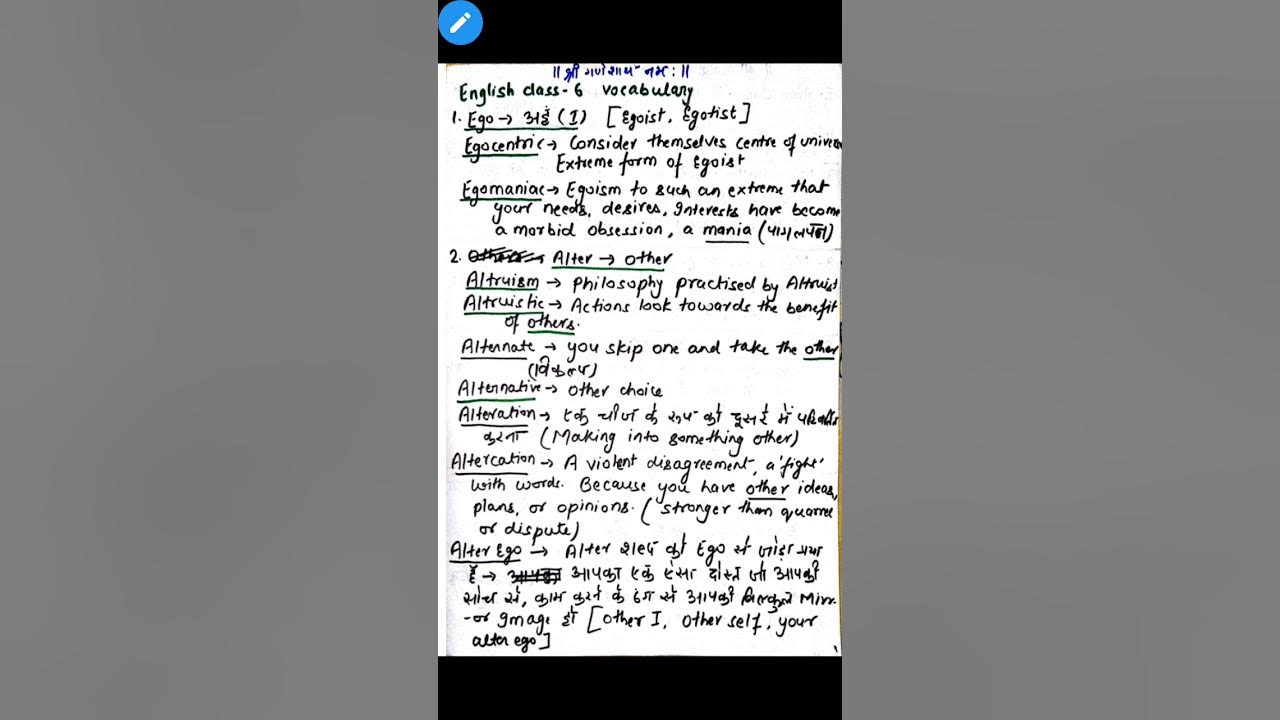 || श्री गणेशाय नमः ||
English class-6 vocabulary
1. Ego → अहं (I) [Egoist, Egotist]
Egocentric → Consider themselves centre of univers
Extreme form of Egoist
Egomaniac → Egoism to such an extreme that
your needs, desires, Interests have become
a morbid obsession, a mania (पागलपन)
2. Others → Alter → other
Altruism → Philosophy practised by Altruist
Altruistic → Actions look towards the benefit
of others.
Alternate → you skip one and take the other
(विकल्प)
Alternative → other choice
Alteration → एक चीज के रूप को दूसरे में परिवर्तित
करना (Making into something other)
Altercation → A violent disagreement, a 'fight'
with words. Because you have other ideas,
plans, or opinions. (stronger than quarrel
or dispute)
Alter Ego → Alter शब्द को Ego से जोड़ा गया
है → आपका एक ऐसा दोस्त जो आपकी
सोच से, काम करने के ढंग से आपकी बिल्कुल Mirr-
-or Image हो [other I, other self, your
alter ego]